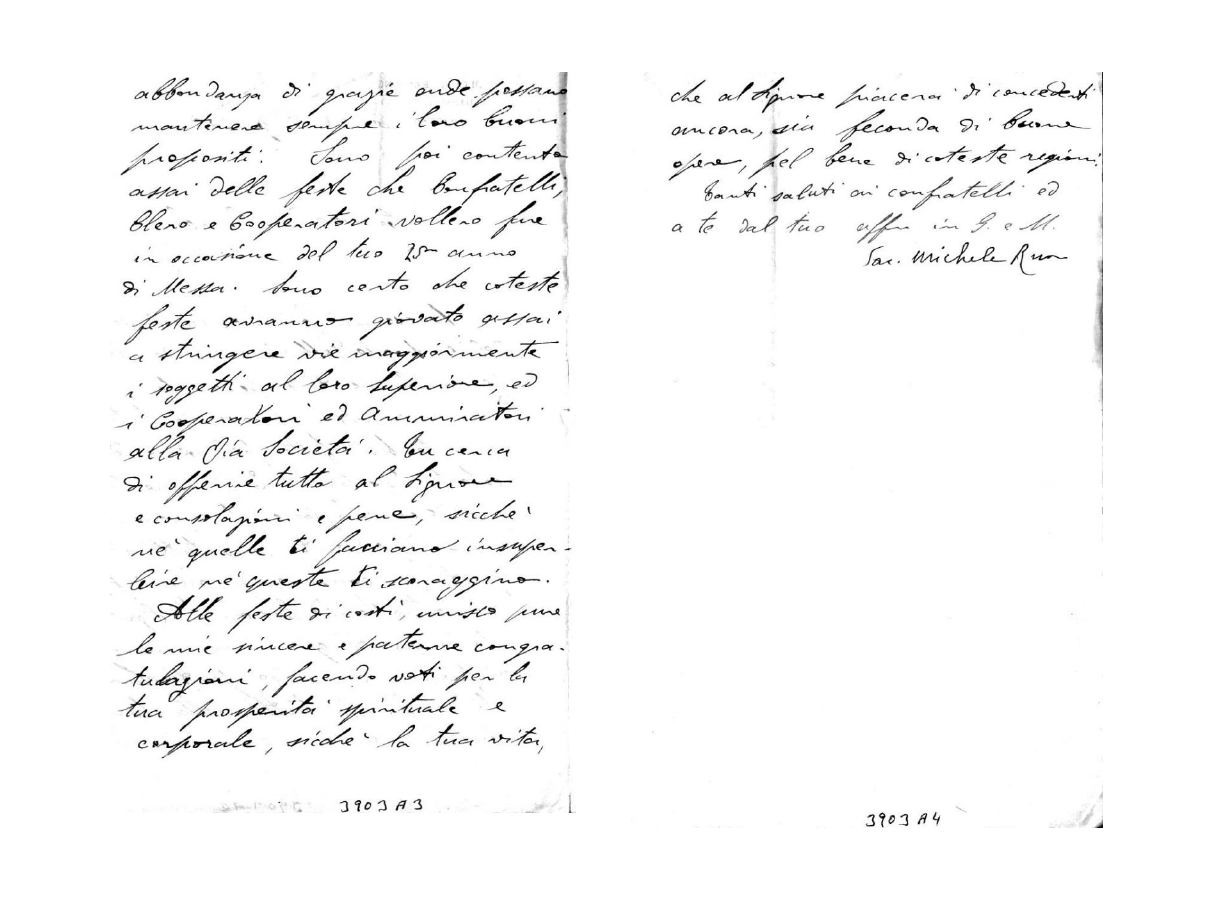 abbondanza di grazie onde possano
mantenere sempre i loro buoni
propositi. Sono poi contento
assai delle feste che Confratelli,
Clero e Cooperatori vollero fare
in occasione del tuo 25mo anno
di Messa. Sono certo che coteste
feste avranno giovato assai
a stringere vie maggiormente
i soggetti al loro Superiore, ed
i Cooperatori ed Ammiratori
alla Pia Società. Tu cerca
di offerire tutto al Signore
e consolazioni e pene, sicchè
nè quelle ti facciano insuper-
bire nè queste ti scoraggino.
Alle feste di costì, unisco pure
le mie sincere e paterne congra-
tulazioni, facendo voti per la
tua prosperità spirituale e
corporale, sicchè la tua vita,
3903 A3
che al Signore piacerà di concederti
ancora, sia feconda di buone
opere, pel bene di coteste regioni.
Tanti saluti ai confratelli ed
a te dal tuo affmo in G. e M.
Sac. Michele Rua
3903 A4